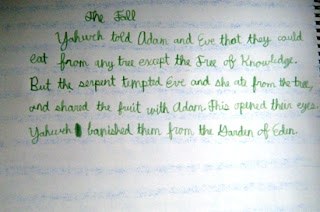 The Fall
Yahweh told Adam and Eve that they could
eat from any tree except the Tree of Knowledge.
But the serpent tempted Eve and she ate from the tree,
and shared the fruit with Adam. This opened their eyes.
Yahweh banished them from the Garden of Eden.